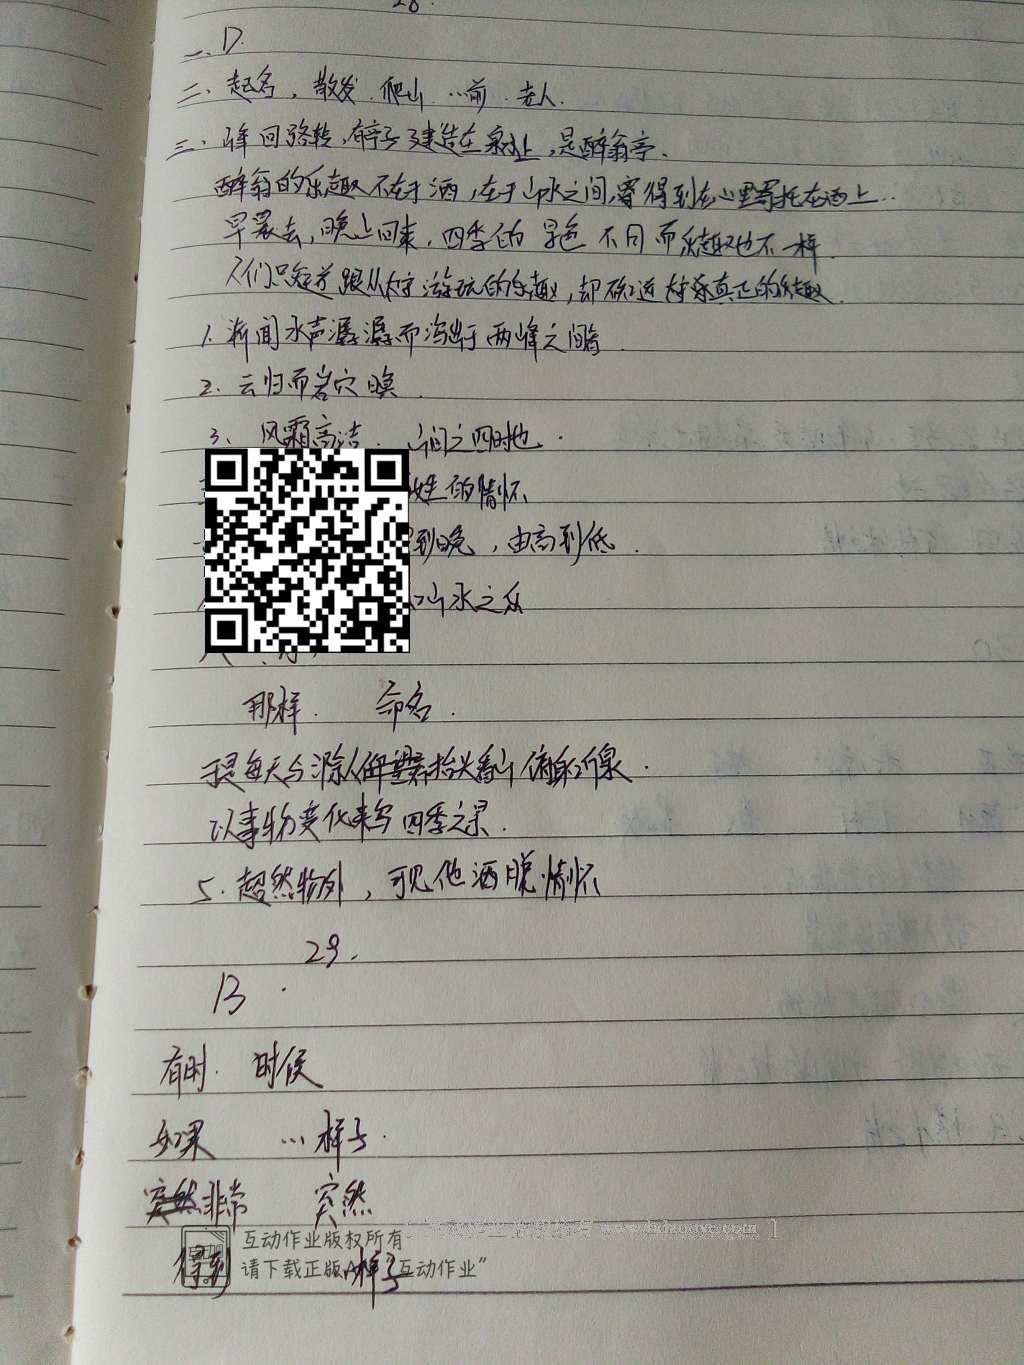 28.
一、D.
二、起名，散发 爬山 …前 老人.
三、峰回路转，有亭子建造在泉上，是醉翁亭.
醉翁的乐趣不在于酒，在于山水之间，得到在心里寄托在酒上..
早晨去，晚上回来，四季的景色不同而乐趣也不一样
人们只知道跟从太守游玩的乐趣，却不知道太守真正的乐趣
1. 渐闻水声潺潺而泻出于两峰之间者
2. 云归而岩穴暝
3、风霜高洁 山间之四时也.
姓的情怀
到晚，由高到低.
山水之乐
那样. 命名.
于是每天与滁人仰望抬头看山俯身听泉.
以事物变化来写四季之景.
5. 超然物外，可见他洒脱情怀
29.
B.
有时. 时候
如果 …样子.
非常 突然
得到 …样子
互动作业版权所有
请下载正版APP“互动作业”